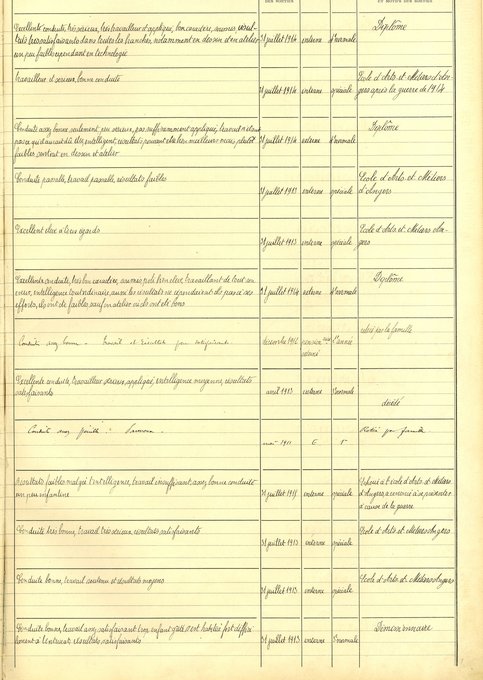 Excellente conduite, très sérieux, très travailleur et appliqué, bon caractère, soumis, résul-
tats très satisfaisants dans toutes les branches, notamment en dessin et en atelier
un peu faible cependant en technologie
31 juillet 1914 externe 4e normale Diplôme
Travailleur et sérieux, bonne conduite
31 juillet 1914 externe spéciale École d'Arts et Métiers d'An-
gers après la guerre de 1914
Conduite assez bonne seulement, peu sérieux, pas suffisamment appliqué,
intelligent, résultats pouvant être bien meilleurs mais plutôt
faibles surtout en dessin et atelier
31 juillet 1914 externe 4e normale Diplôme
Conduite passable, travail passable, résultats faibles
31 juillet 1913 externe spéciale École d'Arts et Métiers
d'Angers
Excellent élève à tous égards
31 juillet 1913 externe spéciale École d'Arts et Métiers An-
gers
Excellente conduite, très bon caractère, soumis poli bien élevé, travaillant de tout son
cœur, intelligence très ordinaire, aussi les résultats ne répondirent-ils pas à ses
efforts, ils ont été faibles, sauf en atelier où ils ont été bons
31 juillet 1914 externe 4e normale Diplôme
Conduite assez bonne - Travail et résultats peu satisfaisants
décembre 1911 1e année retiré par la famille
Excellente conduite, travailleur sérieux, appliqué, intelligence moyenne, résultats
satisfaisants
avril 1913 externe 3e normale décédé
Conduite assez
mai 1911 E 1e Retiré par famille
Résultats faibles malgré l'intelligence, travail insuffisant, assez bonne conduite
un peu enfantine
31 juillet externe spéciale à l'école d'Arts et Métiers
d'Angers, a renoncé à se présenter
à cause de la guerre
Conduite très bonne, travail très sérieux, résultats satisfaisants
31 juillet 1913 externe spéciale École d'Arts et Métiers Angers
Conduite bonne, travail soutenu et résultats moyens
31 juillet 1913 externe spéciale École d'Arts et Métiers Angers
Conduite bonne, travail assez satisfaisant, enfant gâté
résultats satisfaisants
31 juillet 1913 externe 3e normale Démissionnaire